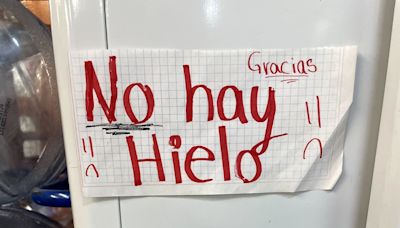 Gracias
No hay
Hielo